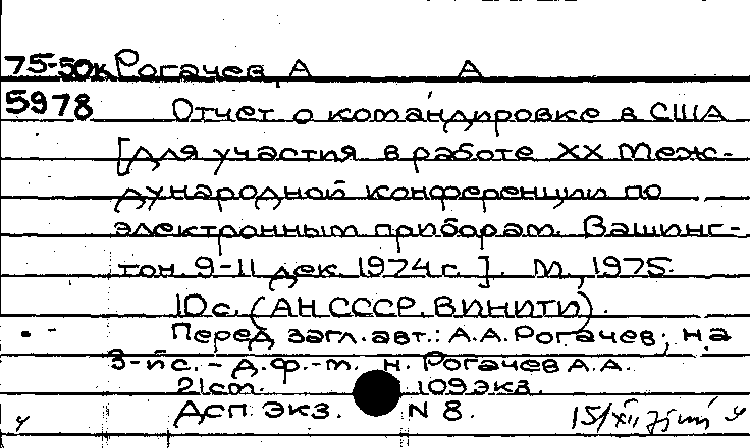 75-50к Рогачев, А А
5978 Отчет о командировке в США
[Для участия в работе XX Меж-
дународной конференции по
электронным приборам. Вашинг-
тон. 9-11 дек. 1974 г.]. М., 1975.
10 с. (АН СССР. ВИНИТИ).
Перед загл. авт.: А.А. Рогачев; на
3-й с. - д.ф.-м. н. Рогачев А.А.
21 см. 109 экз.
Дсп. Экз. N 8.